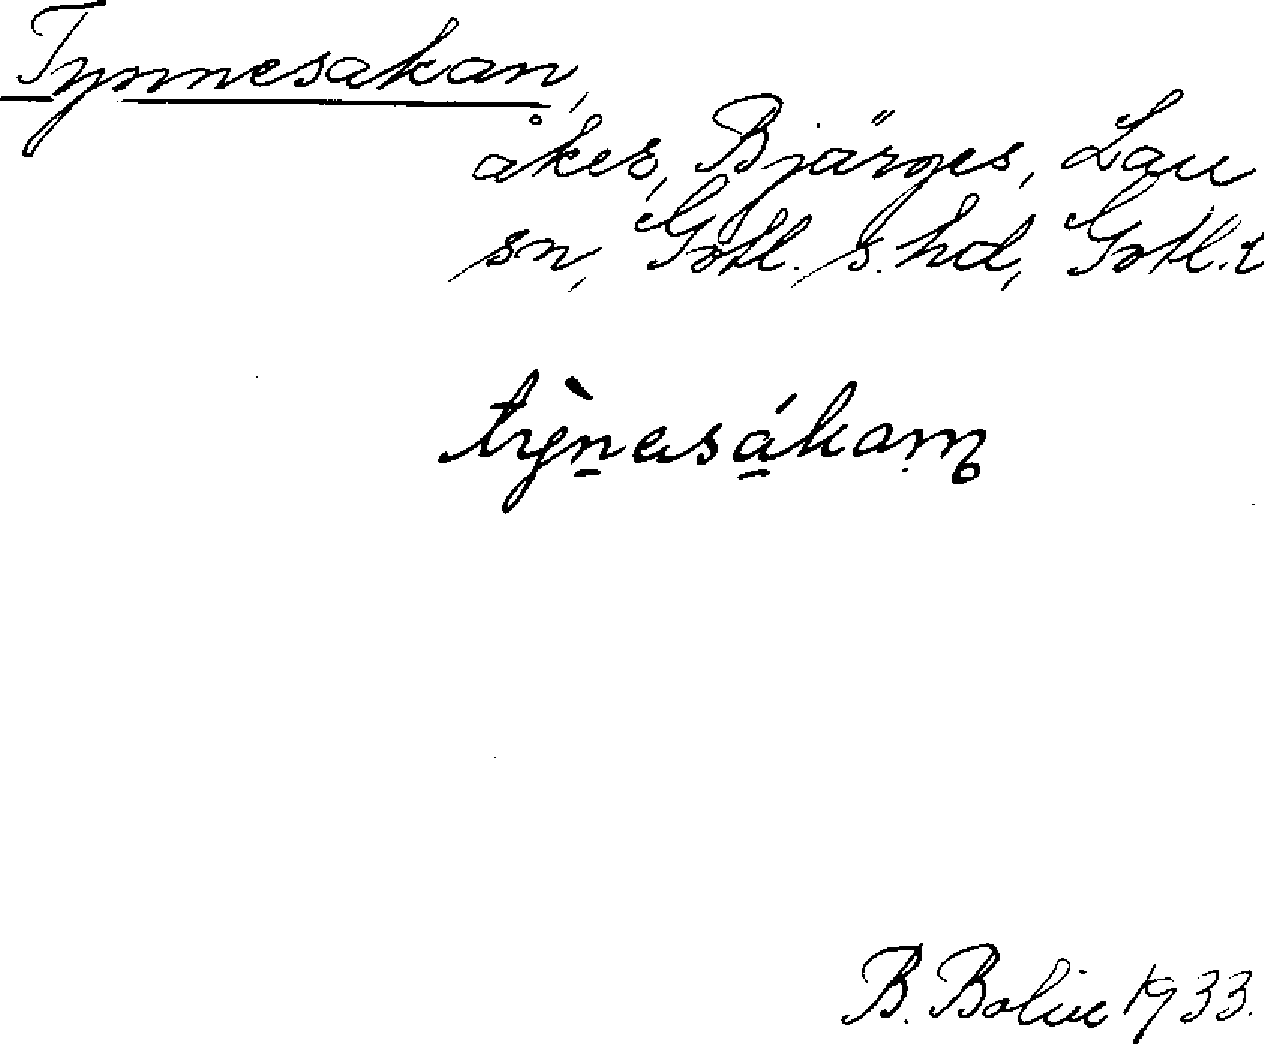 Tynnesakan,
åker, Bjärges, Lau
sn, Gotl. s. hd, Gotl. l
B. Bolin 1933.